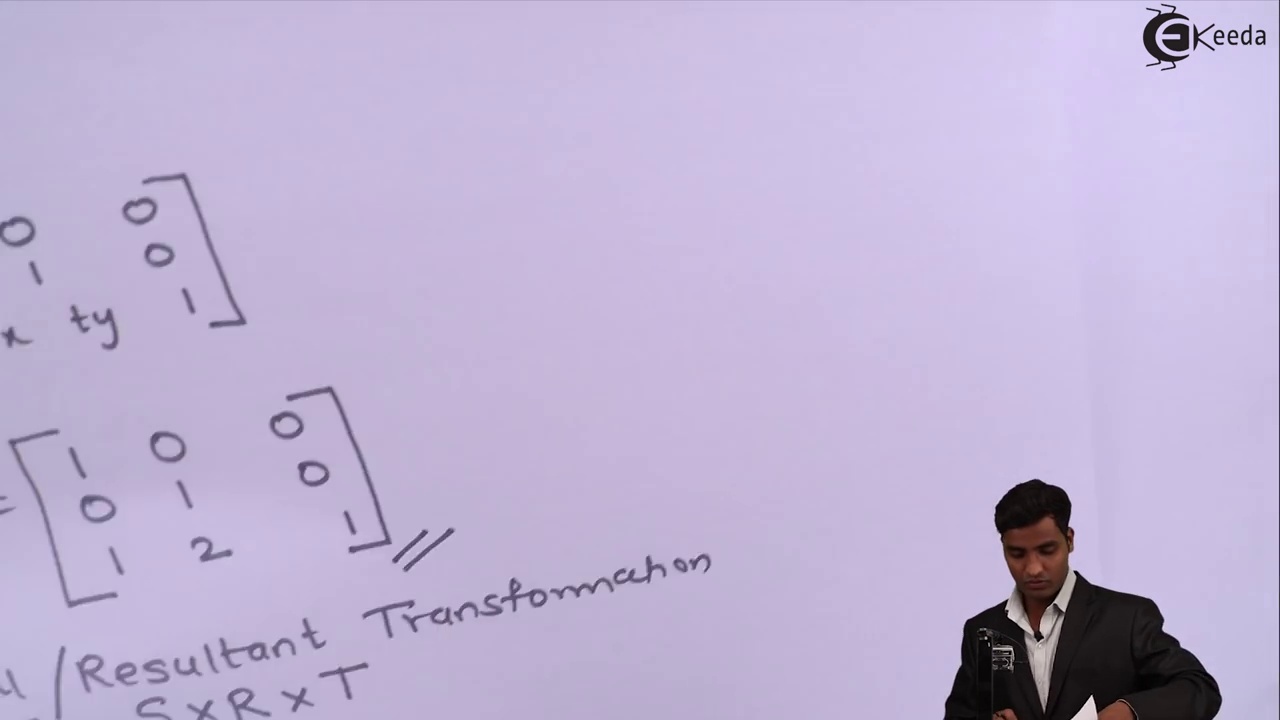 EKeeda
0 0
1 0
x ty 1
= 1 0 0
0 1 0
1 2 1
/ Resultant Transformation
S × R × T